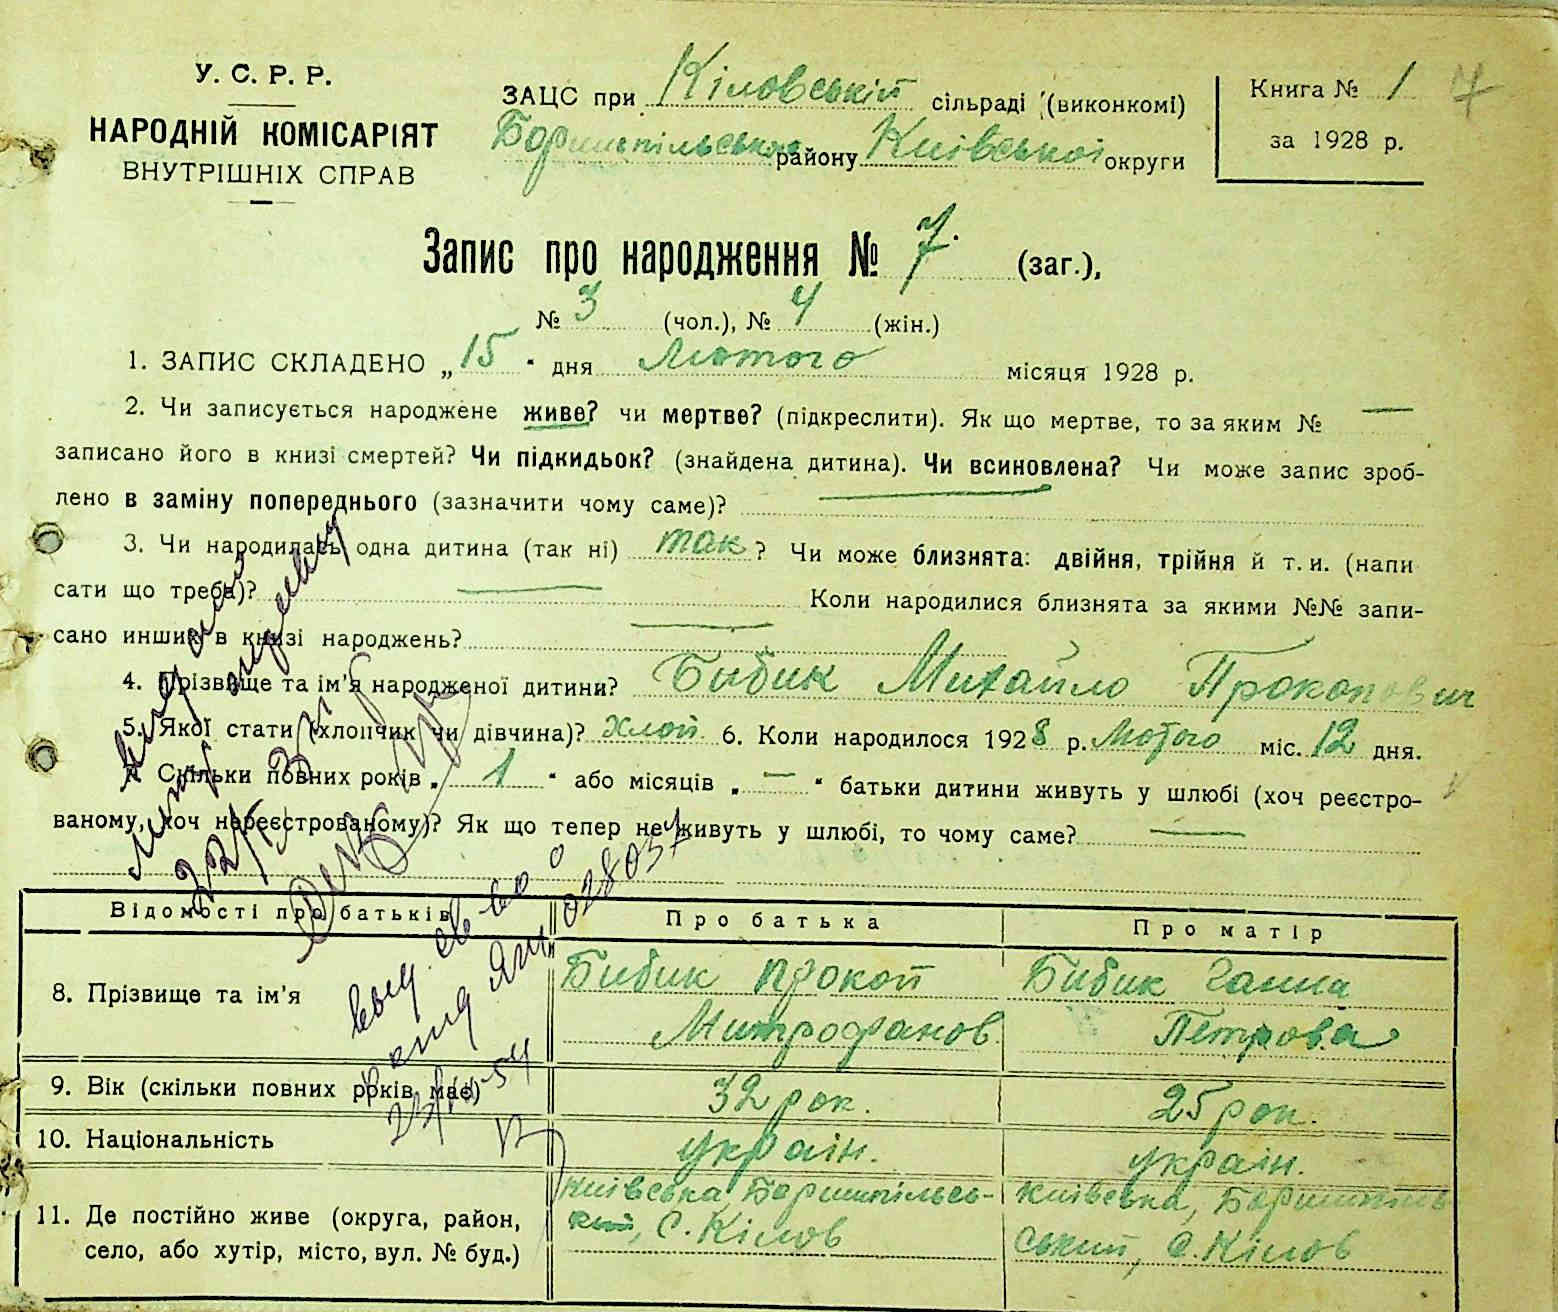 У. С. Р. Р.
НАРОДНІЙ КОМІСАРІЯТ
ВНУТРІШНІХ СПРАВ
ЗАЦС при Кіловській сільраді (виконкомі)
Бориспільського району Київської округи
Книга № 1 7
за 1928 р.
Запис про народження № 7. (заг.),
№ 3 (чол.), № 4 (жін.)
1. ЗАПИС СКЛАДЕНО „15" дня Лютого місяця 1928 р.
2. Чи записується народжене живе? чи мертве? (підкреслити). Як що мертве, то за яким № —
записано його в книзі смертей? Чи підкидьок? (знайдена дитина). Чи всиновлена? Чи може запис зроб-
лено в заміну попереднього (зазначити чому саме)? —
3. Чи народилась одна дитина (так ні) так ? Чи може близнята: двійня, трійня й т. и. (напи
сати що треба)? — Коли народилися близнята за якими №№ запи-
сано инших в книзі народжень? —
4. Прізвище та ім'я народженої дитини? Бибик Михайло Прокопович
5. Якої стати (хлопчик чи дівчина)? Хлоп. 6. Коли народилося 1928 р. Лютого міс. 12 дня.
7. Скільки повних років „ 1 " або місяців „ — " батьки дитини живуть у шлюбі (хоч реєстро-
ваному, хоч нереєстрованому)? Як що тепер не живуть у шлюбі, то чому саме? —
Відомості про батьків Про батька Про матір
8. Прізвище та ім'я Бибик Прокоп Бибик Ганна
Митрофанов. Петрова
9. Вік (скільки повних років має) 32 рок. 25 рок.
10. Національність україн. україн.
11. Де постійно живе (округа, район, Київська, Бориспільсь- Київська, Бориспіль
село, або хутір, місто, вул. № буд.) кий, с. Кілов ський, с. Кілов
выд. св во
ЯШ 028037
23/III-54